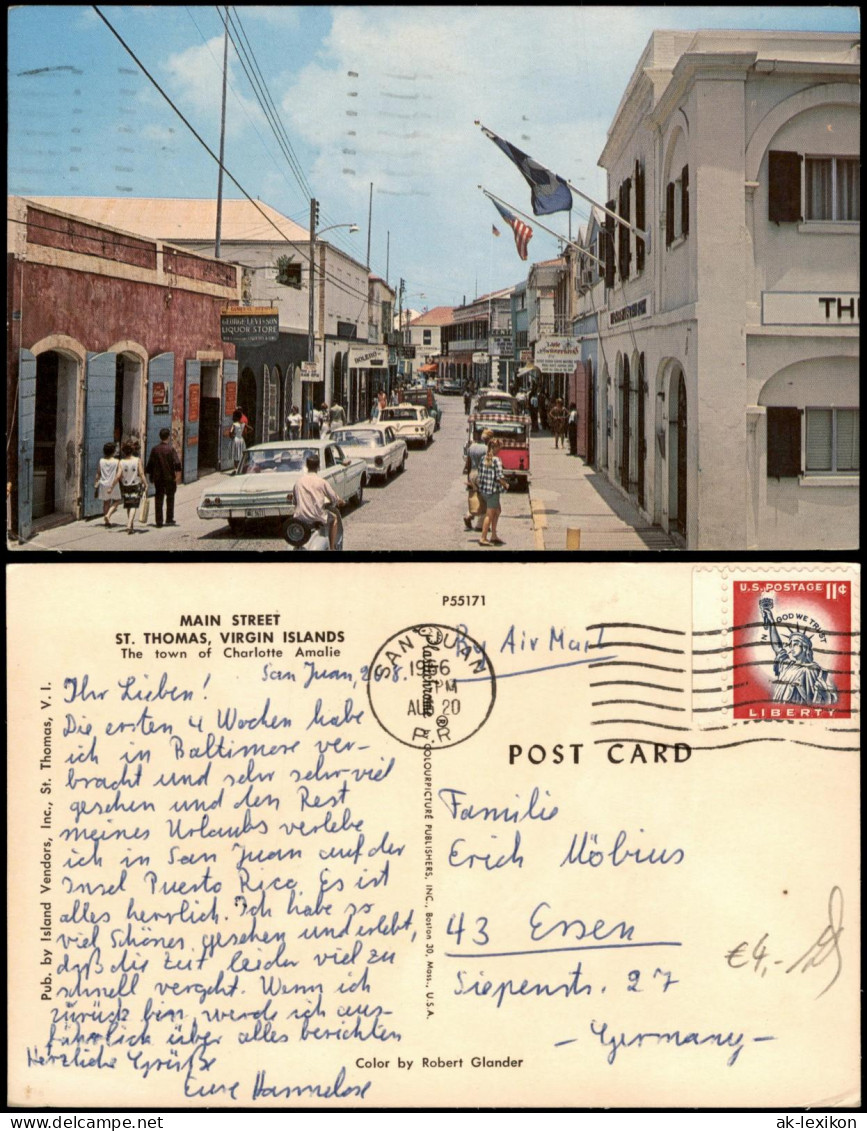 GEORGE LEVI & SON
LIQUOR STORE
BOLERO
TH
P55171
MAIN STREET
ST. THOMAS, VIRGIN ISLANDS
The town of Charlotte Amalie
SAN JUAN
PM
AUG 20
P.R.
By Air Mail
U.S. POSTAGE 11¢
IN GOD WE TRUST
LIBERTY
San Juan, 20.8.
Ihr Lieben!
Die ersten 4 Wochen habe
ich in Baltimore ver-
bracht und sehr sehr viel
gesehen und den Rest
meines Urlaubs verlebe
ich in San Juan auf der
Insel Puerto Rico. Es ist
alles herrlich. Ich habe so
viel Schönes gesehen und erlebt,
daß die Zeit leider viel zu
schnell vergeht. Wenn ich
zurück bin, werde ich aus-
führlich über alles berichten
Herzliche Grüße
Eure Hannelose
Pub. by Island Vendors, Inc., St. Thomas, V. I.
Plastichrome ® by COLOURPICTURE PUBLISHERS, INC., Boston 30, Mass., U.S.A.
POST CARD
Familie
Erich Möbius
43 Essen
Siepenstr. 27
- Germany -
€4,-
Color by Robert Glander
ak-lexikon